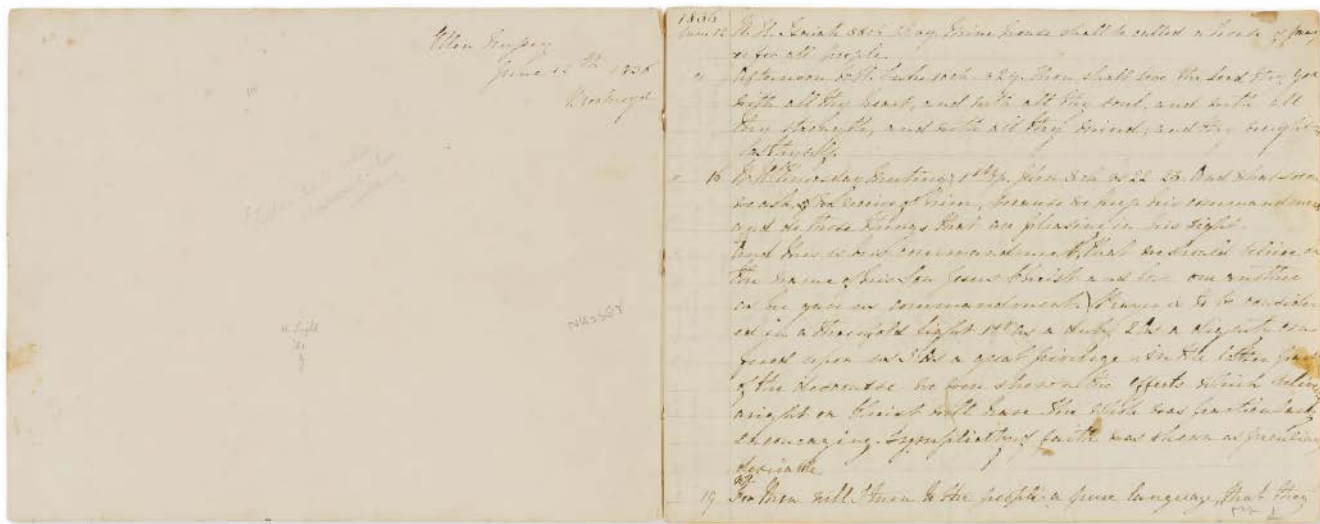 Ellen Nussey
June 12th 1836
Brookroyd
NUSSEY
1836
June 12 Isaiah 56ch 7v my house shall be called a house of pray
er for all people.
" Afternoon Luke 10ch 27v. Thou shalt love the Lord thy God
with all thy heart, and with all thy soul, and with all
thy strength, and with all thy mind; and thy neighbour
as thyself.
" 16 Thursday Meeting 1st Ep. John 3ch vs 22 23. And whatsoever
we ask, we receive of him, because we keep his commandments
and do those things that are pleasing in his sight.
And this is his commandment, that we should believe on
the name of his Son Jesus Christ and love one another
as he gave us commandment. Prayer is to be consider
ed in a threefold light 1st as a duty 2 as a dignity con
ferred upon us 3 as a great privilege. In the latter part
of the discourse we were shewn the effects which believing
aright on Christ will have. The whole was particularly
encouraging. Simplicity of faith was shewn as
desirable
19 For then will I turn to the people a pure language, that they